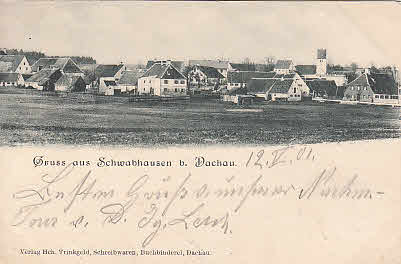 Gruss aus Schwabhausen b. Dachau. 12. V. 01.
Besten Gruß v unserer Nachm-
Tour v. D.
Verlag Hch. Trinkgeld, Schreibwaren, Buchbinderei, Dachau.